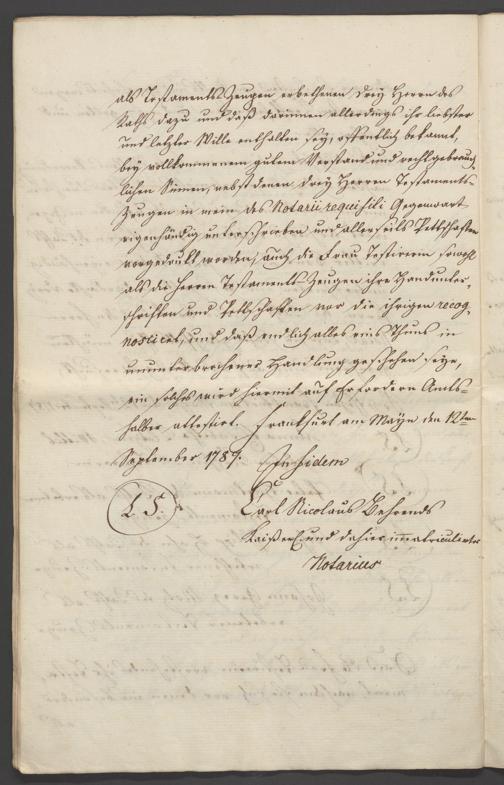 als Testaments Zeugen erbethenen drey Herren des
Raths dazu und daß darinnen allerdings ihr liebster
und letzter Wille enthalten sey, offentlich bekannt,
bey vollkommenem gutem Verstand und recht gebräuch
lichen Sinnen, nebst denen drey Herren Testaments-
Zeugen in mein des Notarii requisiti Gegenwart
eigenhändig unterschrieben und allerseits Pettschaften
vorgedruckt worden, auch die Frau Testirerin sowohl
als die Herren Testaments Zeugen ihre Handunter-
schriften und Pettschaften vor die ihrigen recog-
nosciret, und daß endlich alles eins Thuns in
ununterbrochener Handlung geschehen seye,
ein solches wird hiermit auf Erfordern Amts-
halber attestirt. Franckfurt am Mayn den 12ten
September 1789. In fidem
L. S. Carl Nicolaus Behrends
Kaißerl. und dahier immatriculirter
Notarius